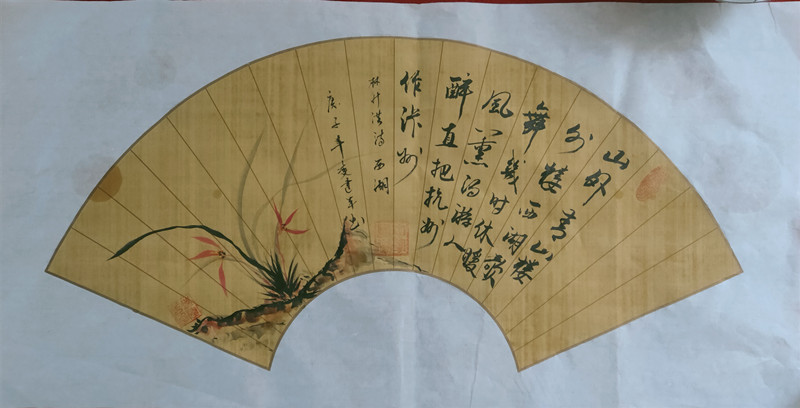 山外青山楼
外楼西湖歌
舞幾时休暖
风熏得游人
醉直把杭州
作汴州
林升洪诗西湖
庚子年建东书